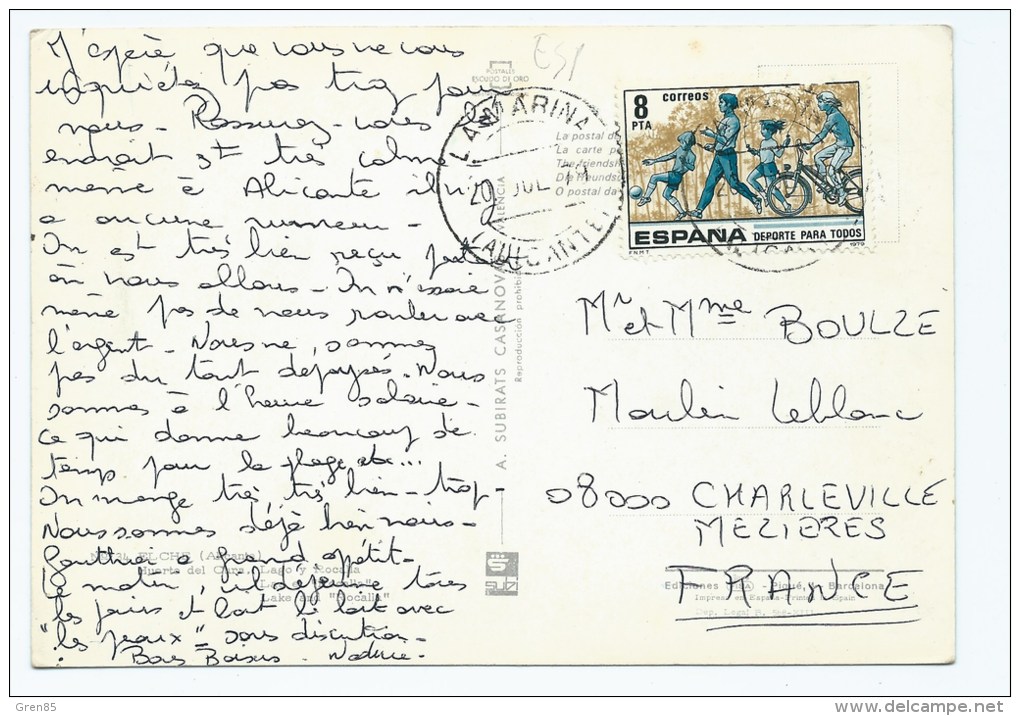 J'espère que vous ne vous
inquiétez pas trop pour
nous - Rassurez-vous
endroit est très calme
même à Alicante il n'y
a aucune rumeur -
On est très bien reçu
où nous allons - On n'essaie
même pas de nous rouler avec
l'argent - Nous ne sommes
pas du tout dépaysés. Nous
sommes à l'heure solaire -
ce qui donne beaucoup de
temps pour la plage etc...
On mange très, très bien - trop -
Nous sommes déjà bien noirs -
Gauthier a grand appétit -
Le matin, il déjeune tous
les jours et boit le lait avec
"les peaux" sans discution -
Bons Baisers -
ESP
POSTALES
ESCUDO DE ORO
LA MARINA
20 JUL 79
(ALICANTE)
La postal de
La carte p
The friendsh
Die Freunds
O postal da
8 PTA
correos
ESPAÑA DEPORTE PARA TODOS
FNMT 1979
A. SUBIRATS CASANOVAS VALENCIA
Reproducción prohibida
Mr et Mme BOULZE
Moulin Leblanc
08000 CHARLEVILLE
MEZIERES
FRANCE
ELCHE (Alicante)
Huerto del Cura. Lago y Rocalla
Lake and "Rocalla"
SUBI
Ediciones - Piqué, - Barcelona
Impreso en España-Printed in Spain
Dep. Legal B.
Gren85